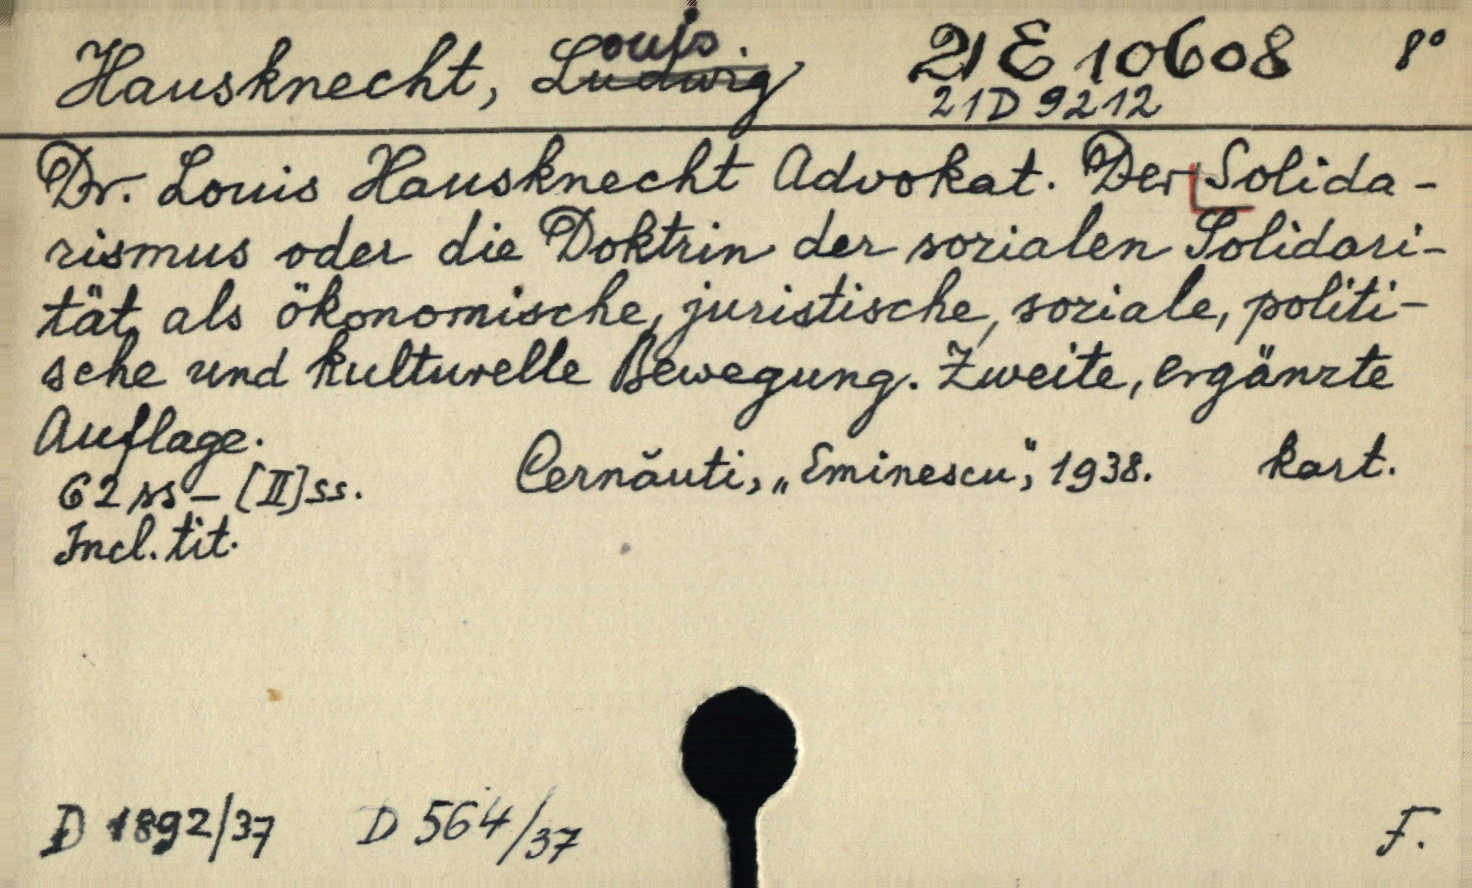 Hausknecht, Louis. Ludwig 21 E 10608 8°
21D 9212
Dr. Louis Hausknecht Advokat. Der Solida-
rismus oder die Doktrin der sozialen Solidari-
tät, als ökonomische, juristische, soziale, politi-
sche und kulturelle Bewegung. Zweite, ergänzte
Auflage.
62 ss – [II] ss. Cernăuti, „Eminescu“, 1938. kart.
Incl. tit.
D 1892/37 D 564/37 F.